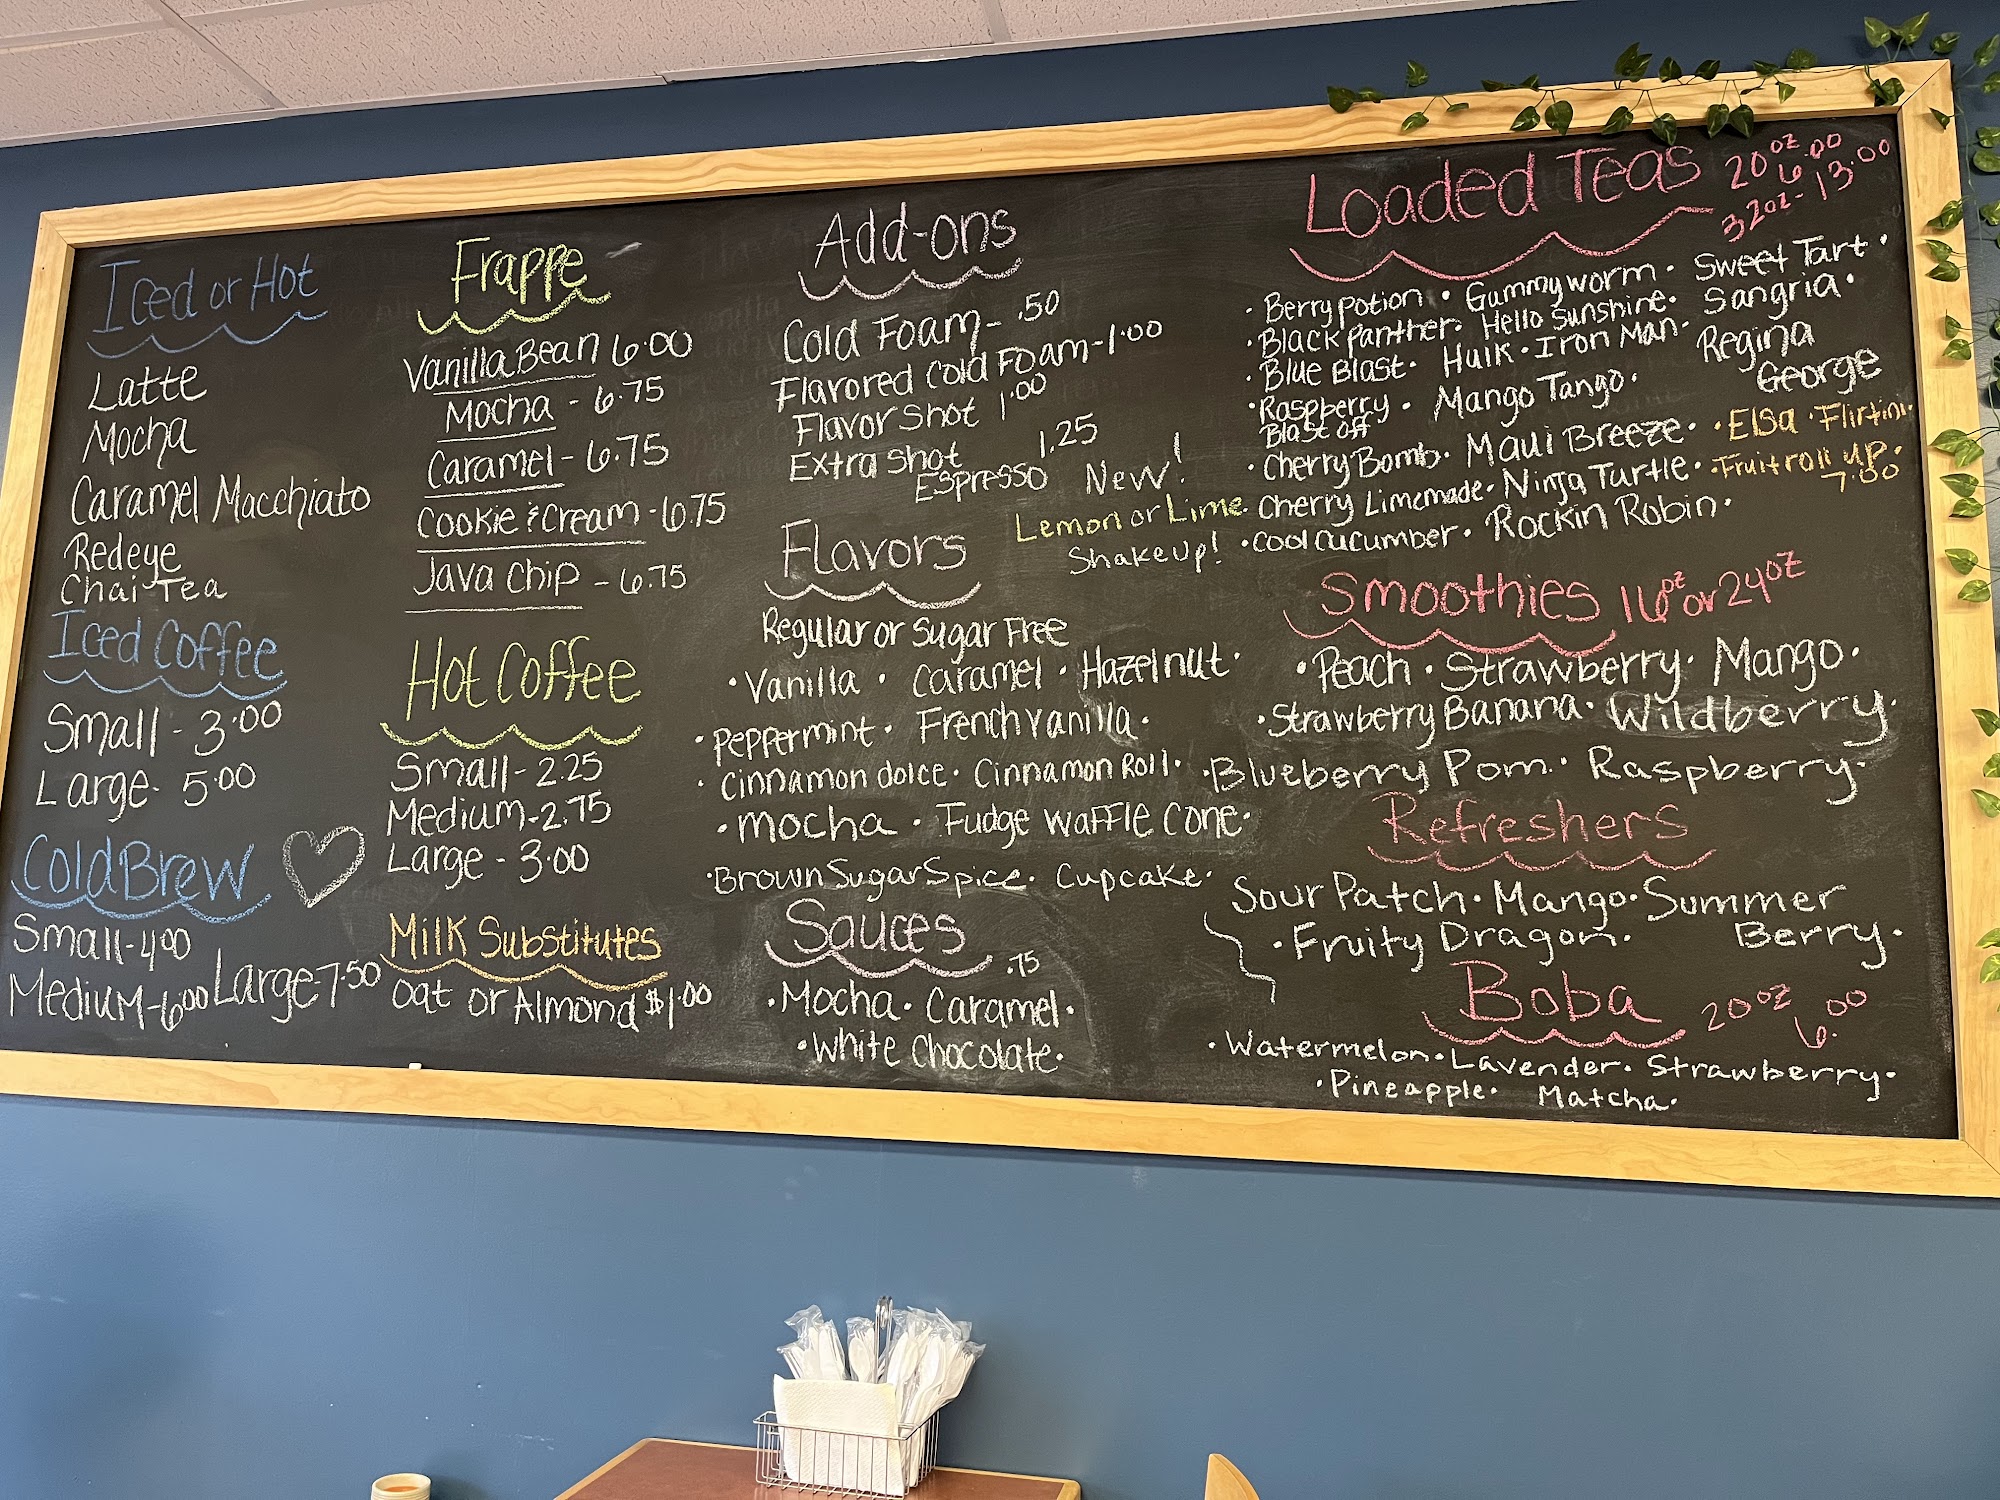 Iced or Hot
Latte
Mocha
Caramel Macchiato
Redeye
Chai Tea
Iced Coffee
Small - 3.00
Large - 5.00
Cold Brew
Small - 4.00
Medium - 6.00 Large - 7.50
Frappe
Vanilla Bean 6.00
Mocha - 6.75
Caramel - 6.75
Cookie & Cream - 6.75
Java Chip - 6.75
Hot Coffee
Small - 2.25
Medium - 2.75
Large - 3.00
Milk Substitutes
Oat or Almond $1.00
Add-ons
Cold Foam - .50
Flavored Cold Foam - 1.00
Flavor Shot 1.00
Extra Shot 1.25
Espresso
New!
Lemon or Lime
Shake up!
Flavors
Regular or Sugar Free
• Vanilla • Caramel • Hazelnut •
• Peppermint • French Vanilla •
• Cinnamon dolce • Cinnamon Roll •
• Mocha • Fudge Waffle Cone •
• Brown Sugar Spice • Cupcake •
Sauces .75
• Mocha • Caramel •
• White Chocolate •
Loaded Teas 20oz 6.00
32oz - 13.00
• Berry potion • Gummy worm • Sweet Tart •
• Black Panther • Hello Sunshine • Sangria •
• Blue Blast • Hulk • Iron Man • Regina
George
• Raspberry • Mango Tango •
Blast off
• Cherry Bomb • Maui Breeze • • Elsa • Flirtini •
• Cherry Limemade • Ninja Turtle • • Fruit roll up •
7.00
• Cool Cucumber • Rockin Robin •
Smoothies 16oz or 24oz
• Peach • Strawberry • Mango •
• Strawberry Banana • Wildberry •
• Blueberry Pom • Raspberry •
Refreshers
Sour Patch • Mango • Summer
Berry •
• Fruity Dragon •
Boba 20oz 6.00
• Watermelon • Lavender • Strawberry •
• Pineapple • Matcha •